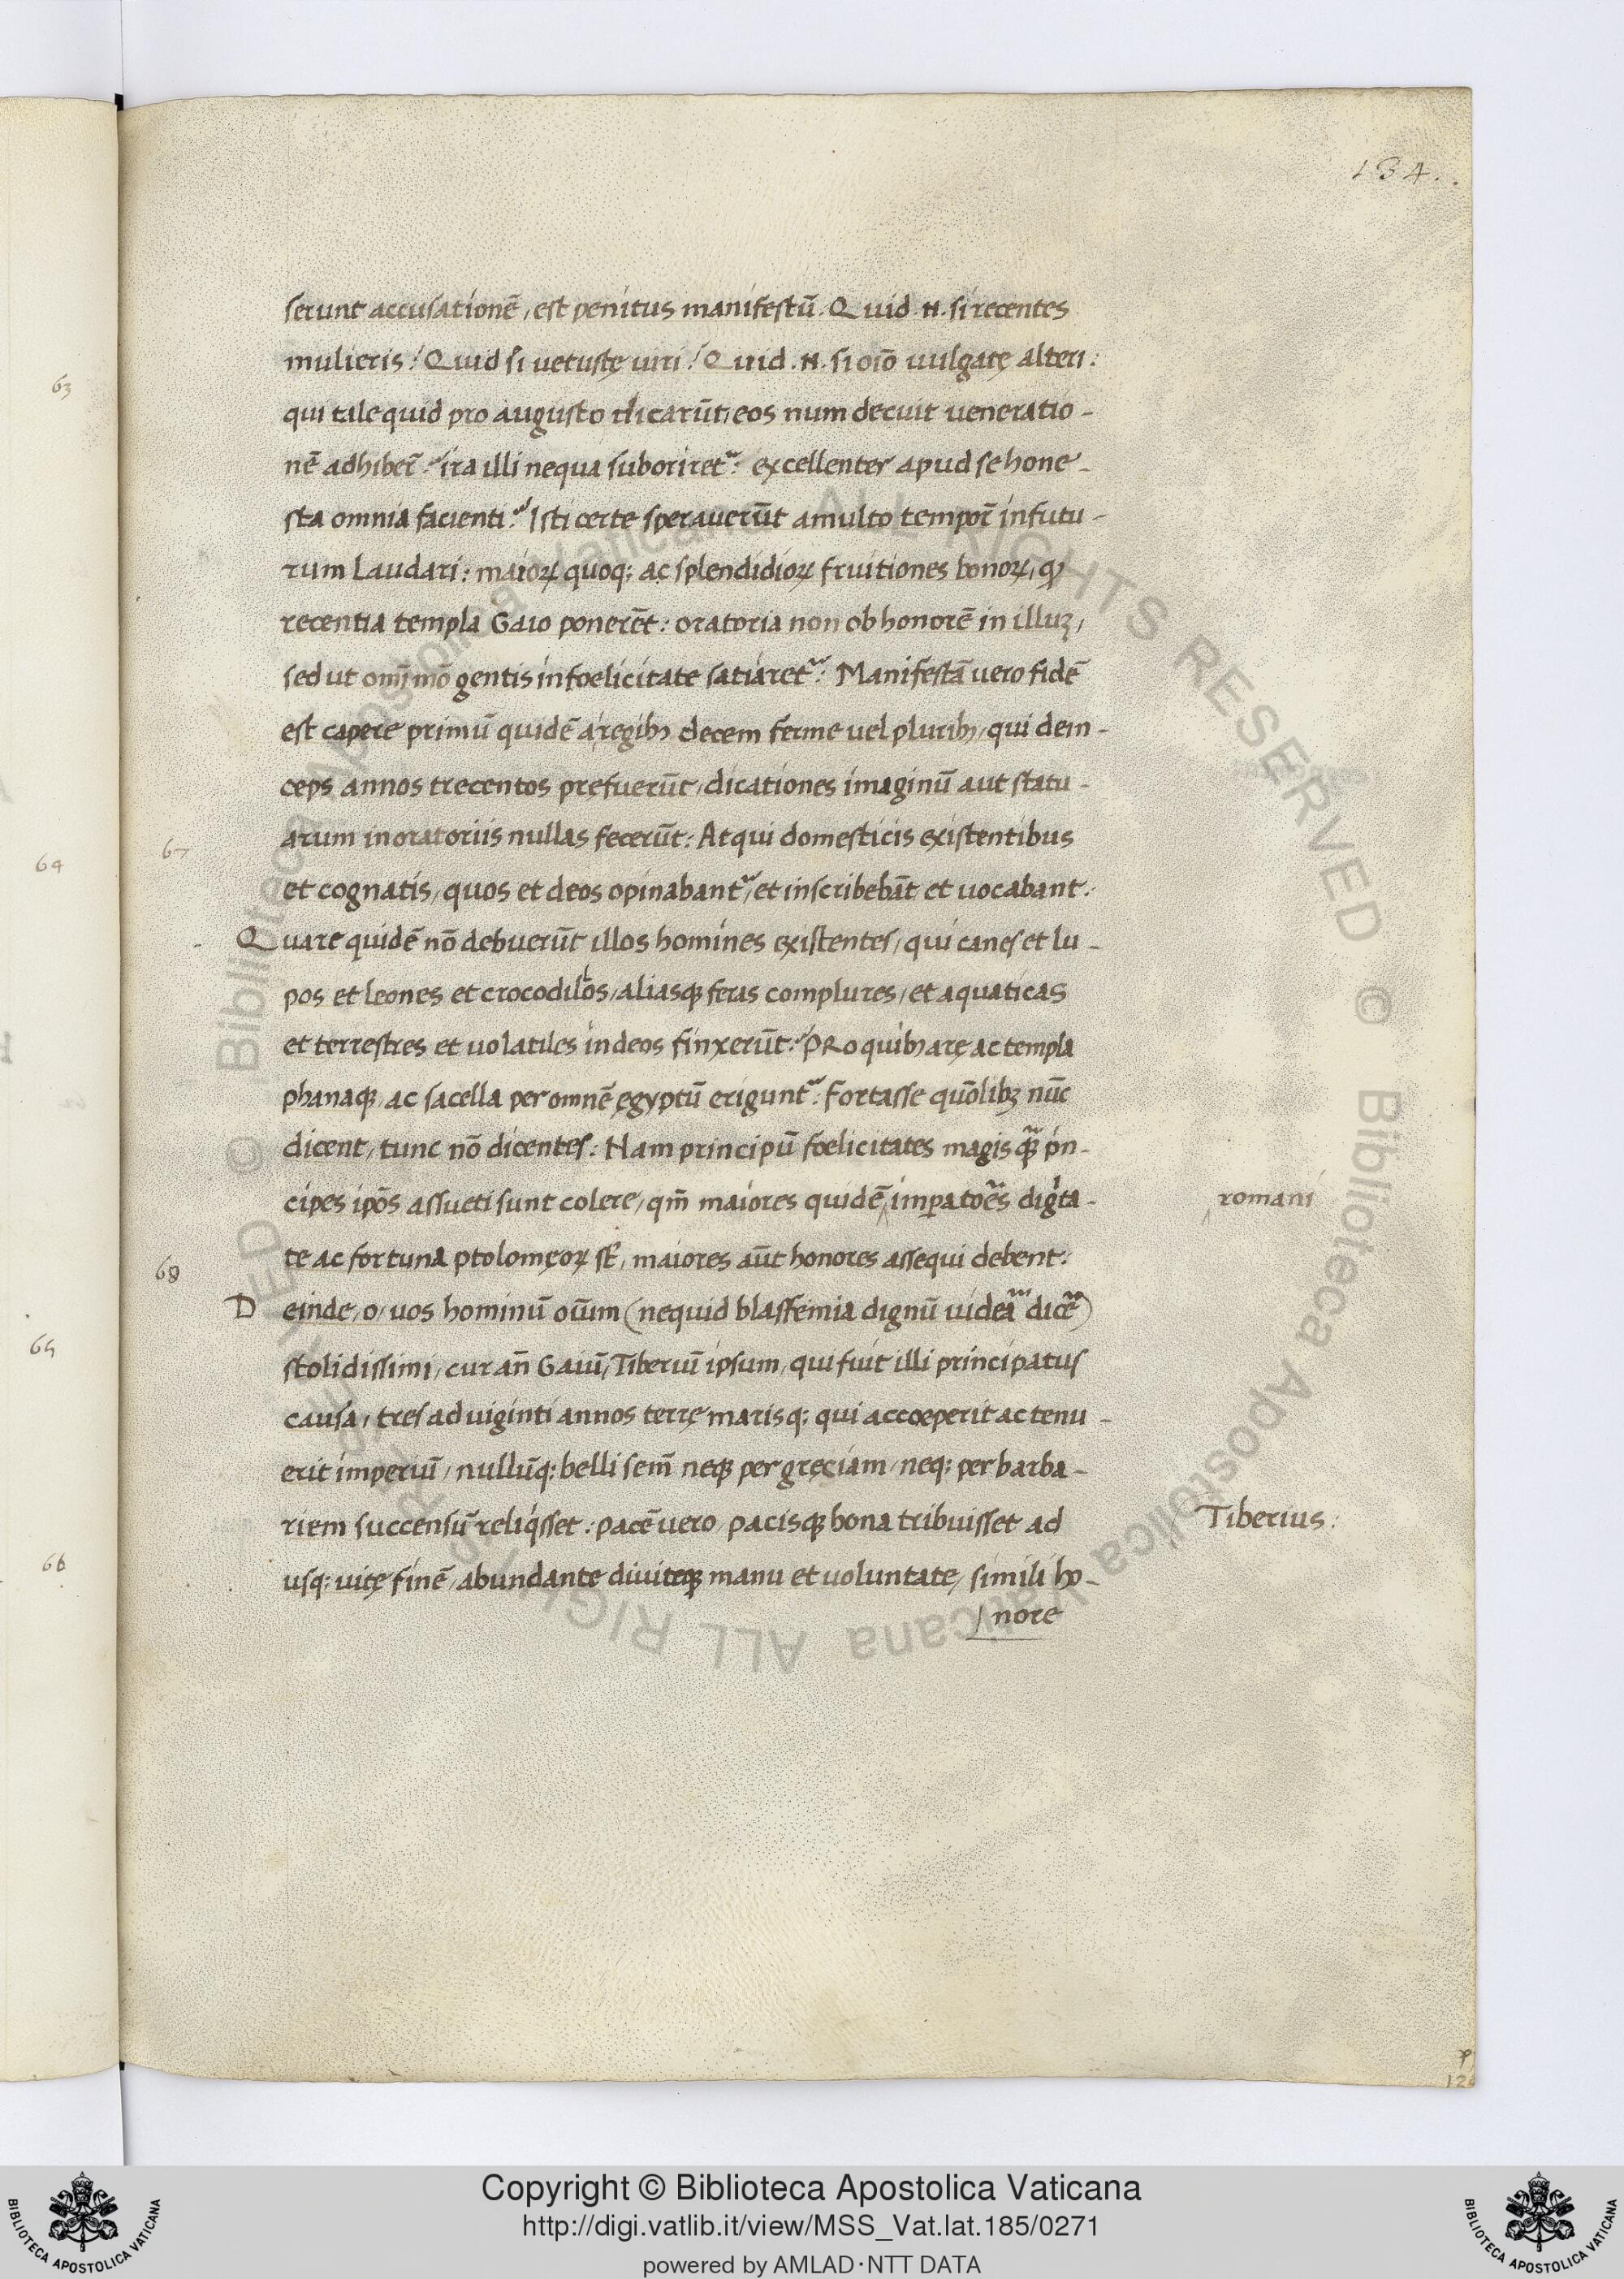 134.
serunt accusationē, est penitus manifestū. Quid .N. si recentes
mulieris? Quid si uetustę uiri? Quid .N. si oīo uulgatę alteri:
qui tale quid pro augusto dicarūt, eos num decuit ueneratio-
nē adhiber̄? ira illi nequa suboriret᷑? excellenter apud se hone-
sta omnia facienti? Isti certe sperauerūt a multo tempor̄ in futu-
rum Laudari: maioꝝ quoq; ac splendidioꝝ fruitiones bonoꝝ, ꝙ
recentia templa Gaio ponerēt: oratoria non ob honorē in illuꝫ,
sed ut om̄imō gentis infoelicitate satiaret᷑: Manifestā uero fidē
est capere primū quidē a regibꝰ decem ferme uel pluribꝰ, qui dein-
ceps annos trecentos pręfuerūt, dicationes imaginū aut statu-
arum in oratoriis nullas fecerūt: Atqui domesticis existentibus
67
et cognatis, quos et deos opinabant᷑, et inscribebāt, et uocabant:
Quare quidē nō debuerūt illos homines existentes, qui canes et lu-
pos et leones et crocodilos, aliasqꝫ feras complures, et aquaticas
et terrestres et uolatiles in deos finxerūt? PRo quibꝰ arę ac templa
phanaqꝫ ac sacella per omnē ęgyptū erigunt᷑: Fortasse quōlibꝫ nūc
dicent, tunc nō dicentes: Nam principū foelicitates magis qꝫ̃ prin-
cipes ipōs assueti sunt colere, qm̄ maiores quidē ‸ imꝑatoēs digita-
‸ romani
te ac fortuna ptolomęoꝝ st̄, maiores aūt honores assequi debent:
68
Deinde, o, uos hominū oīum (nequid blasfemia dignū uideā᷑ dicē᷑)
stolidissimi, cur an̄ Gaiū, Tiberiū ipsum, qui fuit illi principatus
causa, tres ad uiginti annos terrę marisq; qui accoeperit ac tenu-
erit imperiū, nullūq; belli sem̄ neqꝫ per gręciam, neq; per barba-
riem succensū reliqsset: pacē uero pacisqꝫ bona tribuisset ad
Tiberius:
usq; uitę finē, abundante diuiteqꝫ manu et uoluntate, simili ho-
nore
63
64
65
66
Copyright © Biblioteca Apostolica Vaticana
http://digi.vatlib.it/view/MSS_Vat.lat.185/0271
powered by AMLAD·NTT DATA
BIBLIOTECA APOSTOLICA VATICANA
BIBLIOTECA APOSTOLICA VATICANA